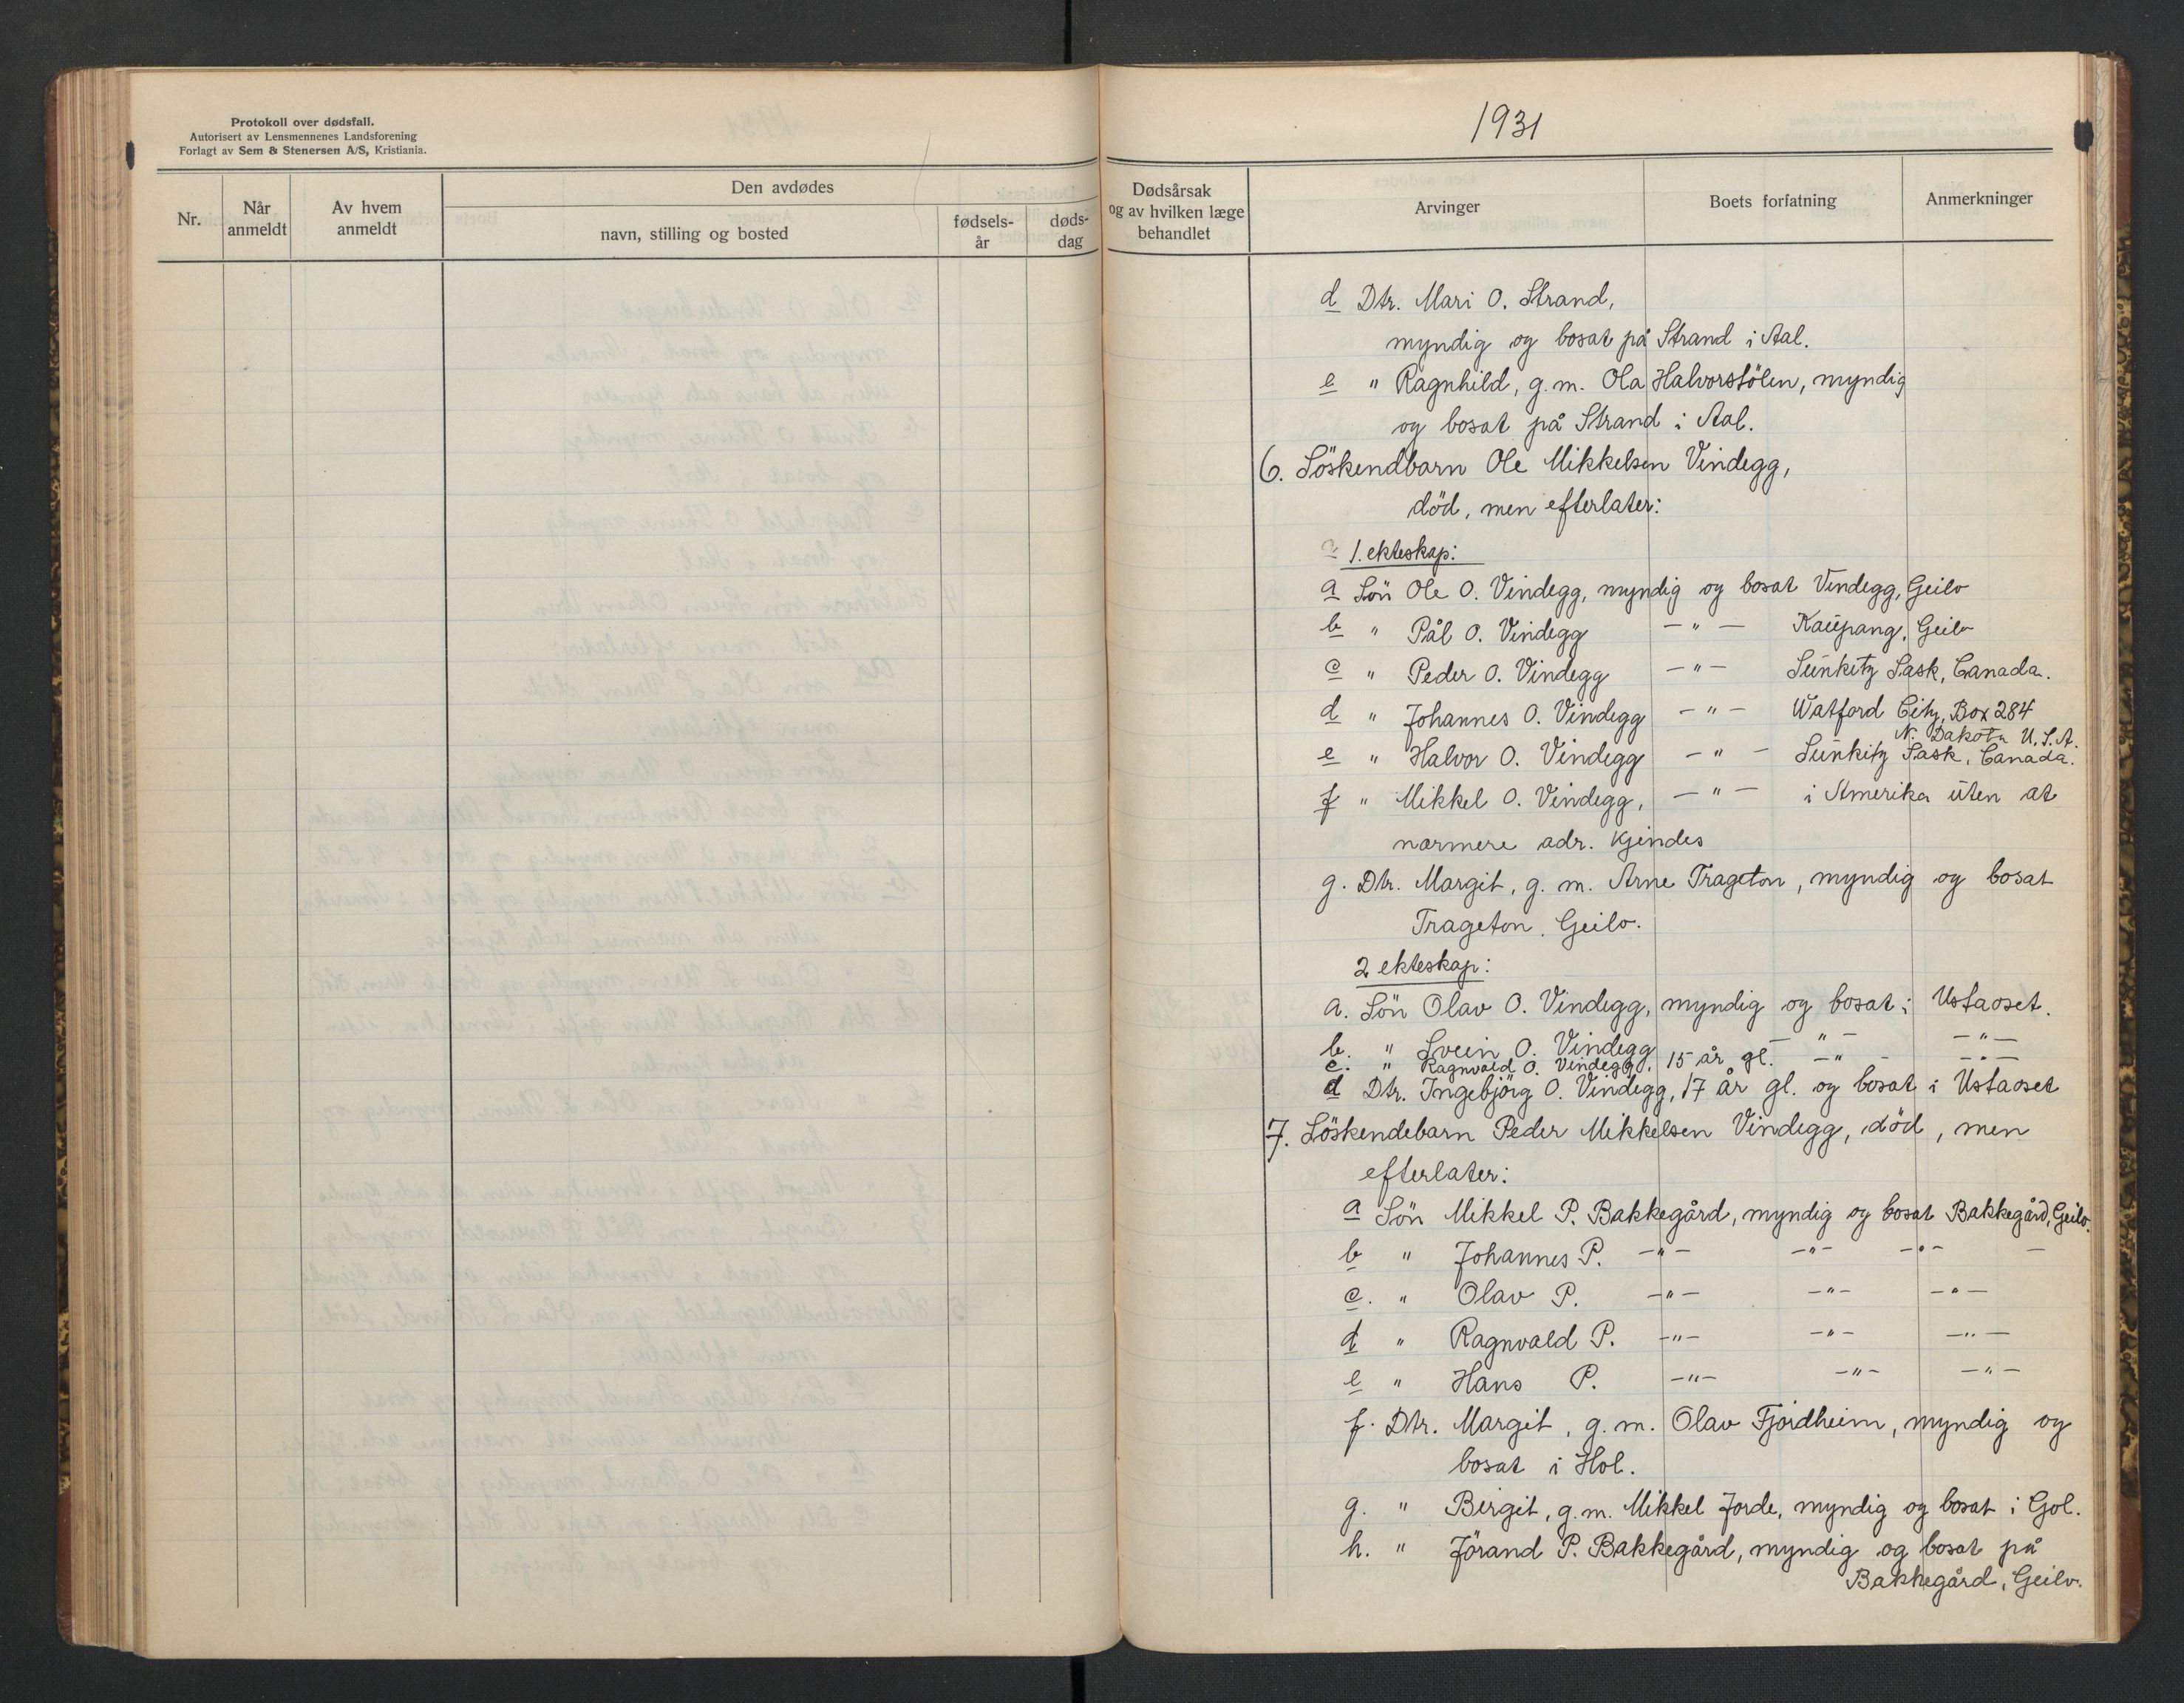 Protokoll over dødsfall.
Autorisert av Lensmennenes Landsforening
Forlagt av Sem & Stenersen A/S, Kristiania.
1931
Nr.
Når anmeldt
Av hvem anmeldt
Den avdødes
navn, stilling og bosted
fødsels-år
døds-dag
Dødsårsak og av hvilken læge behandlet
Arvinger
Boets forfatning
Anmerkninger
d Dtr. Mari O. Strand,
myndig og bosat på Strand i Aal.
e " Ragnhild, g.m. Ola Halvorstölen, myndig
og bosat på Strand i Aal.
6. Söskendbarn Ole Mikkelsen Vindegg,
död, men efterlater:
1. ekteskap:
a Sön Ole O. Vindegg, myndig og bosat Vindegg, Geilo
b " Pål O. Vindegg — " — Kaupang, Geilo
c " Peder O. Vindegg — " — Sunkitz Sask, Canada.
d " Johannes O. Vindegg — " — Watford City, Box 284
N. Dakota U.S.A.
e " Halvor O. Vindegg — " — Sunkitz Sask, Canada.
f " Mikkel O. Vindegg, — " — i Amerika uten at
nærmere adr. kjendes
g. Dtr. Margit, g. m. Arne Trageton, myndig og bosat
Trageton, Geilo.
2 ekteskap:
a. Sön Olav O. Vindegg, myndig og bosat i Ustaoset.
b. " Svein O. Vindegg — " — — " —
c. " Ragnvald O. Vindegg, 15 år gl. — " — — " —
d Dtr. Ingebjörg O. Vindegg, 17 år gl. og bosat i Ustaoset
7. Söskendebarn Peder Mikkelsen Vindegg, död, men
efterlater:
a Sön Mikkel P. Bakkegård, myndig og bosat Bakkegård, Geilo.
b " Johannes P. — " — — " — — " — —
c. " Olav P. — " — — " — — " —
d " Ragnvald P. — " — — " — — " —
e " Hans P. — " — — " — — " —
f. Dtr. Margit, g. m. Olav Fjordheim, myndig og
bosat i Hol.
g. " Birgit, g.m. Mikkel Jorde, myndig og bosat i Gol.
h. " Jörand P. Bakkegård, myndig og bosat på
Bakkegård, Geilo.